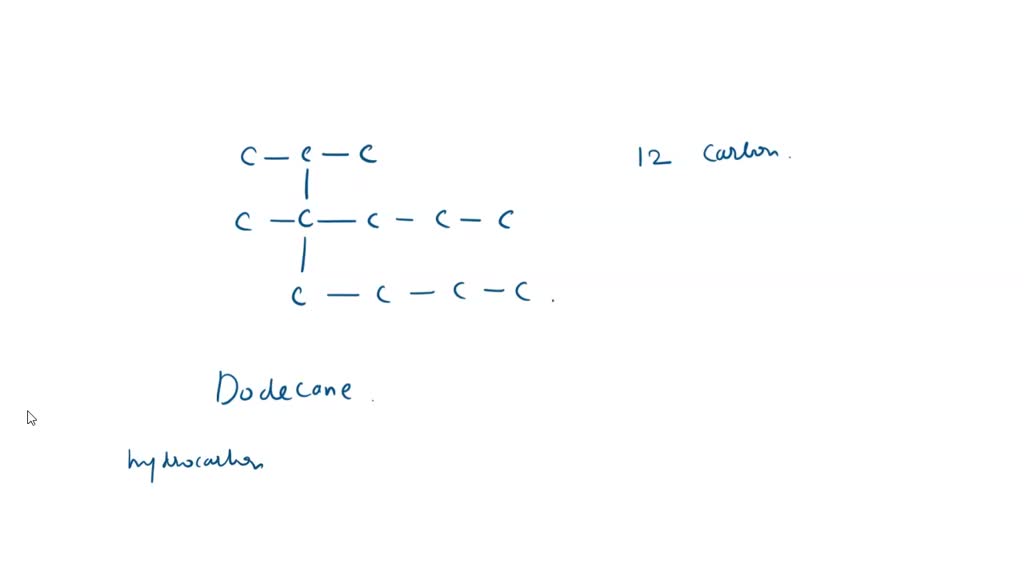 C — C — C
12 Carbon.
C — C — C — C — C
C — C — C — C .
Dodecane .
hydrocarbon